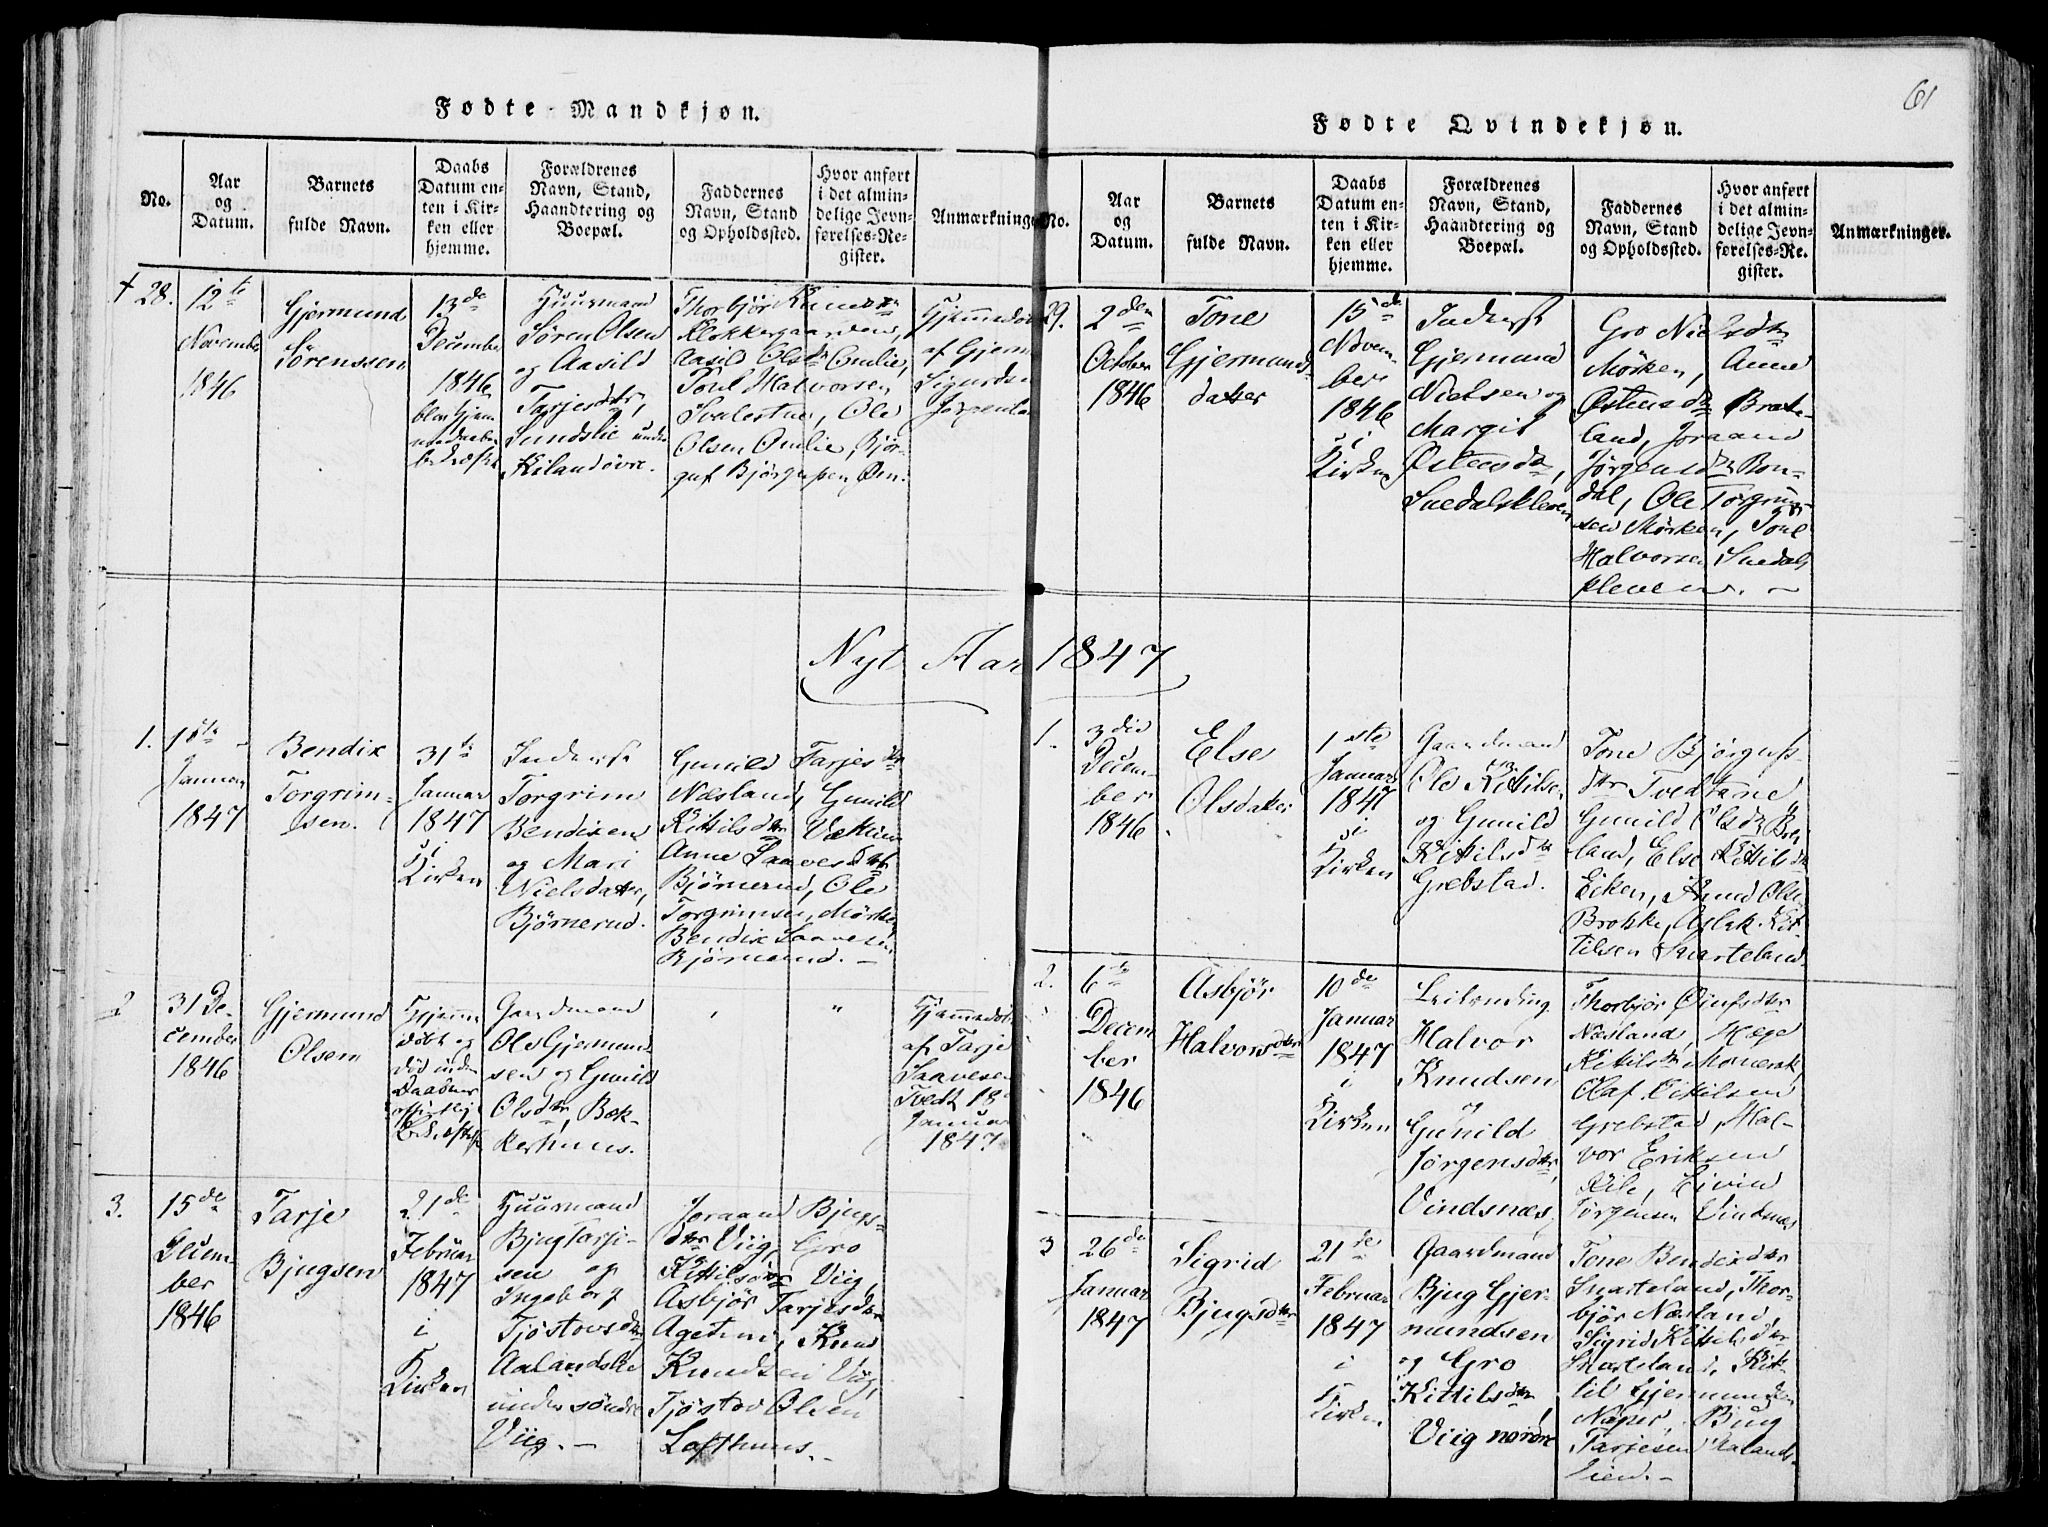 61
Fødte Mandkjøn.
No.
Aar
og
Datum.
Barnets
fulde Navn.
Daabs
Datum en-
ten i Kir-
ken eller
hjemme.
Forældrenes
Navn, Stand,
Haandtering og
Boepæl.
Faddernes
Navn, Stand
og Opholdssted.
Hvor anført
i det almin-
delige Jevn-
førelses-Re-
gister.
Anmærkninger
28.
12te
November
1846
Gjermund
Sörenssen
13de
December
1846
Huusmand
Sören Olsen
og Aasild
Tarjesdtr,
Sundslie under
Kilandövre.
Thorbjör
Klokkergaarden,
Aasild Olsdtr Omlie,
Poul Halvorsen
Ole
Olsen Omlie, Björ-
guf
Hjemmedöbt
af Gjerm
Sigurdsen
Nyt Aar 1847
1.
Januar
1847
Bendix
Torgrim-
sen.
31te
Januar
1847
i
Kirken
Inderst
Torgrim
Bendixen
og Mari
Nielsdatter,
Bjørnerud.
Gunild Tarjesdtr
Næsland, Gunild
Kittilsdtr
Anne Saavesdtr
Bjørnerud, Ole
Torgrimsen, Mörken
Bendix Saavesen
Bjørnerud. —
2
31 De-
cember
1846
Gjermund
Olsen
Hjemme
döbt og
död inden
Daaben
Gaardmand
Ole Gjermund
sen og Gunild
Olsdtr, Bæk-
kerhuus.
"
Hjemmedöbt
af Tarje
Saavesen
Tvedt 18
Januar
1847
3.
15de
Decem
ber
1846
Tarje
Bjugsen
21de
Februar
1847
i
Kirken
Huusmand
Bjug Tarje-
sen og
Ingeborg
Tjöstovsdtr
Aalandslie
under söndre
Viig. —
Joraand Bjugs-
dtr Viig, Gro
Kittilsdtr Viig,
Asbjör Tarjesdtr
Knud
Knudsen Viig,
Tjöstov Olsen
Lofthuus. -
Fødte Qvindekjøn.
No.
Aar
og
Datum.
Barnets
fulde Navn.
Daabs
Datum en-
ten i Kir-
ken eller
hjemme.
Forældrenes
Navn, Stand,
Haandtering og
Boepæl.
Faddernes
Navn, Stand
og Opholdssted.
Hvor anført
i det almin-
delige Jevn-
førelses-Re-
gister.
Anmærkninger.
29.
2den
October
1846
Tone
Gjermunds
datter
15de
Novem-
ber
1846
i
Kirken
Inderst
Gjermund
Nielsen og
Margit
Östensdtr,
Suedalskleven
Gro Nielsdtr
Mörken, Anne
Östensdtr Brate-
land, Joraand
Jörgensdtr Bon-
dal, Ole Torgrim
sen Mörken, Poul
Halvorsen Suedals
kleven. —
1.
3die
Decem-
ber
1846
Else
Olsdatter
1ste
Januar
1847
i
Kirken
Gaardmand
Ole Kittilsen
og Gunild
Kittilsdtr
Grebstad.
Tone Björgufs-
dtr Tvedtane
Gunild Olsdtr
land, Else Kittilsdtr
Eeken, Knud Olsen
Brokke, Aslak Kit-
tilsen Snarteland.
2.
6te
Decem
ber
1846
Asbjör
Halvorsdtr
10de
Januar
1847
i
Kirken
Leilending
Halvor
Knudsen
og
Gunild
Jörgensdtr,
Vindsnæs
Thorbjör
Næsland, Hæge
Kittilsdtr Momrak
Olaf Kittilsen
Grebstad, Hal-
vor Eriksen
Eivin
Jörgensen Vindsnæs
3
26de
Januar
1847
Sigrid
Bjugsdtr
21de
Februar
1847
i
Kirken
Gaardmand
Bjug Gjer-
mundsen
og Gro
Kittilsdtr,
Viig nordre
Tone Bendixdtr
Snarteland, Thor-
björ Næsland,
Sigrid Kittilsdtr
Snarteland, Kit-
til Gjermundsen
Bjug
Tarjesen Aalands-
lien. -